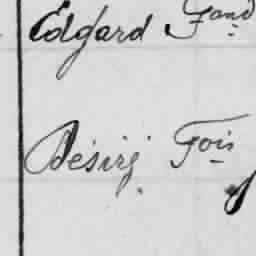 Edgard Fand
Désiré Fois